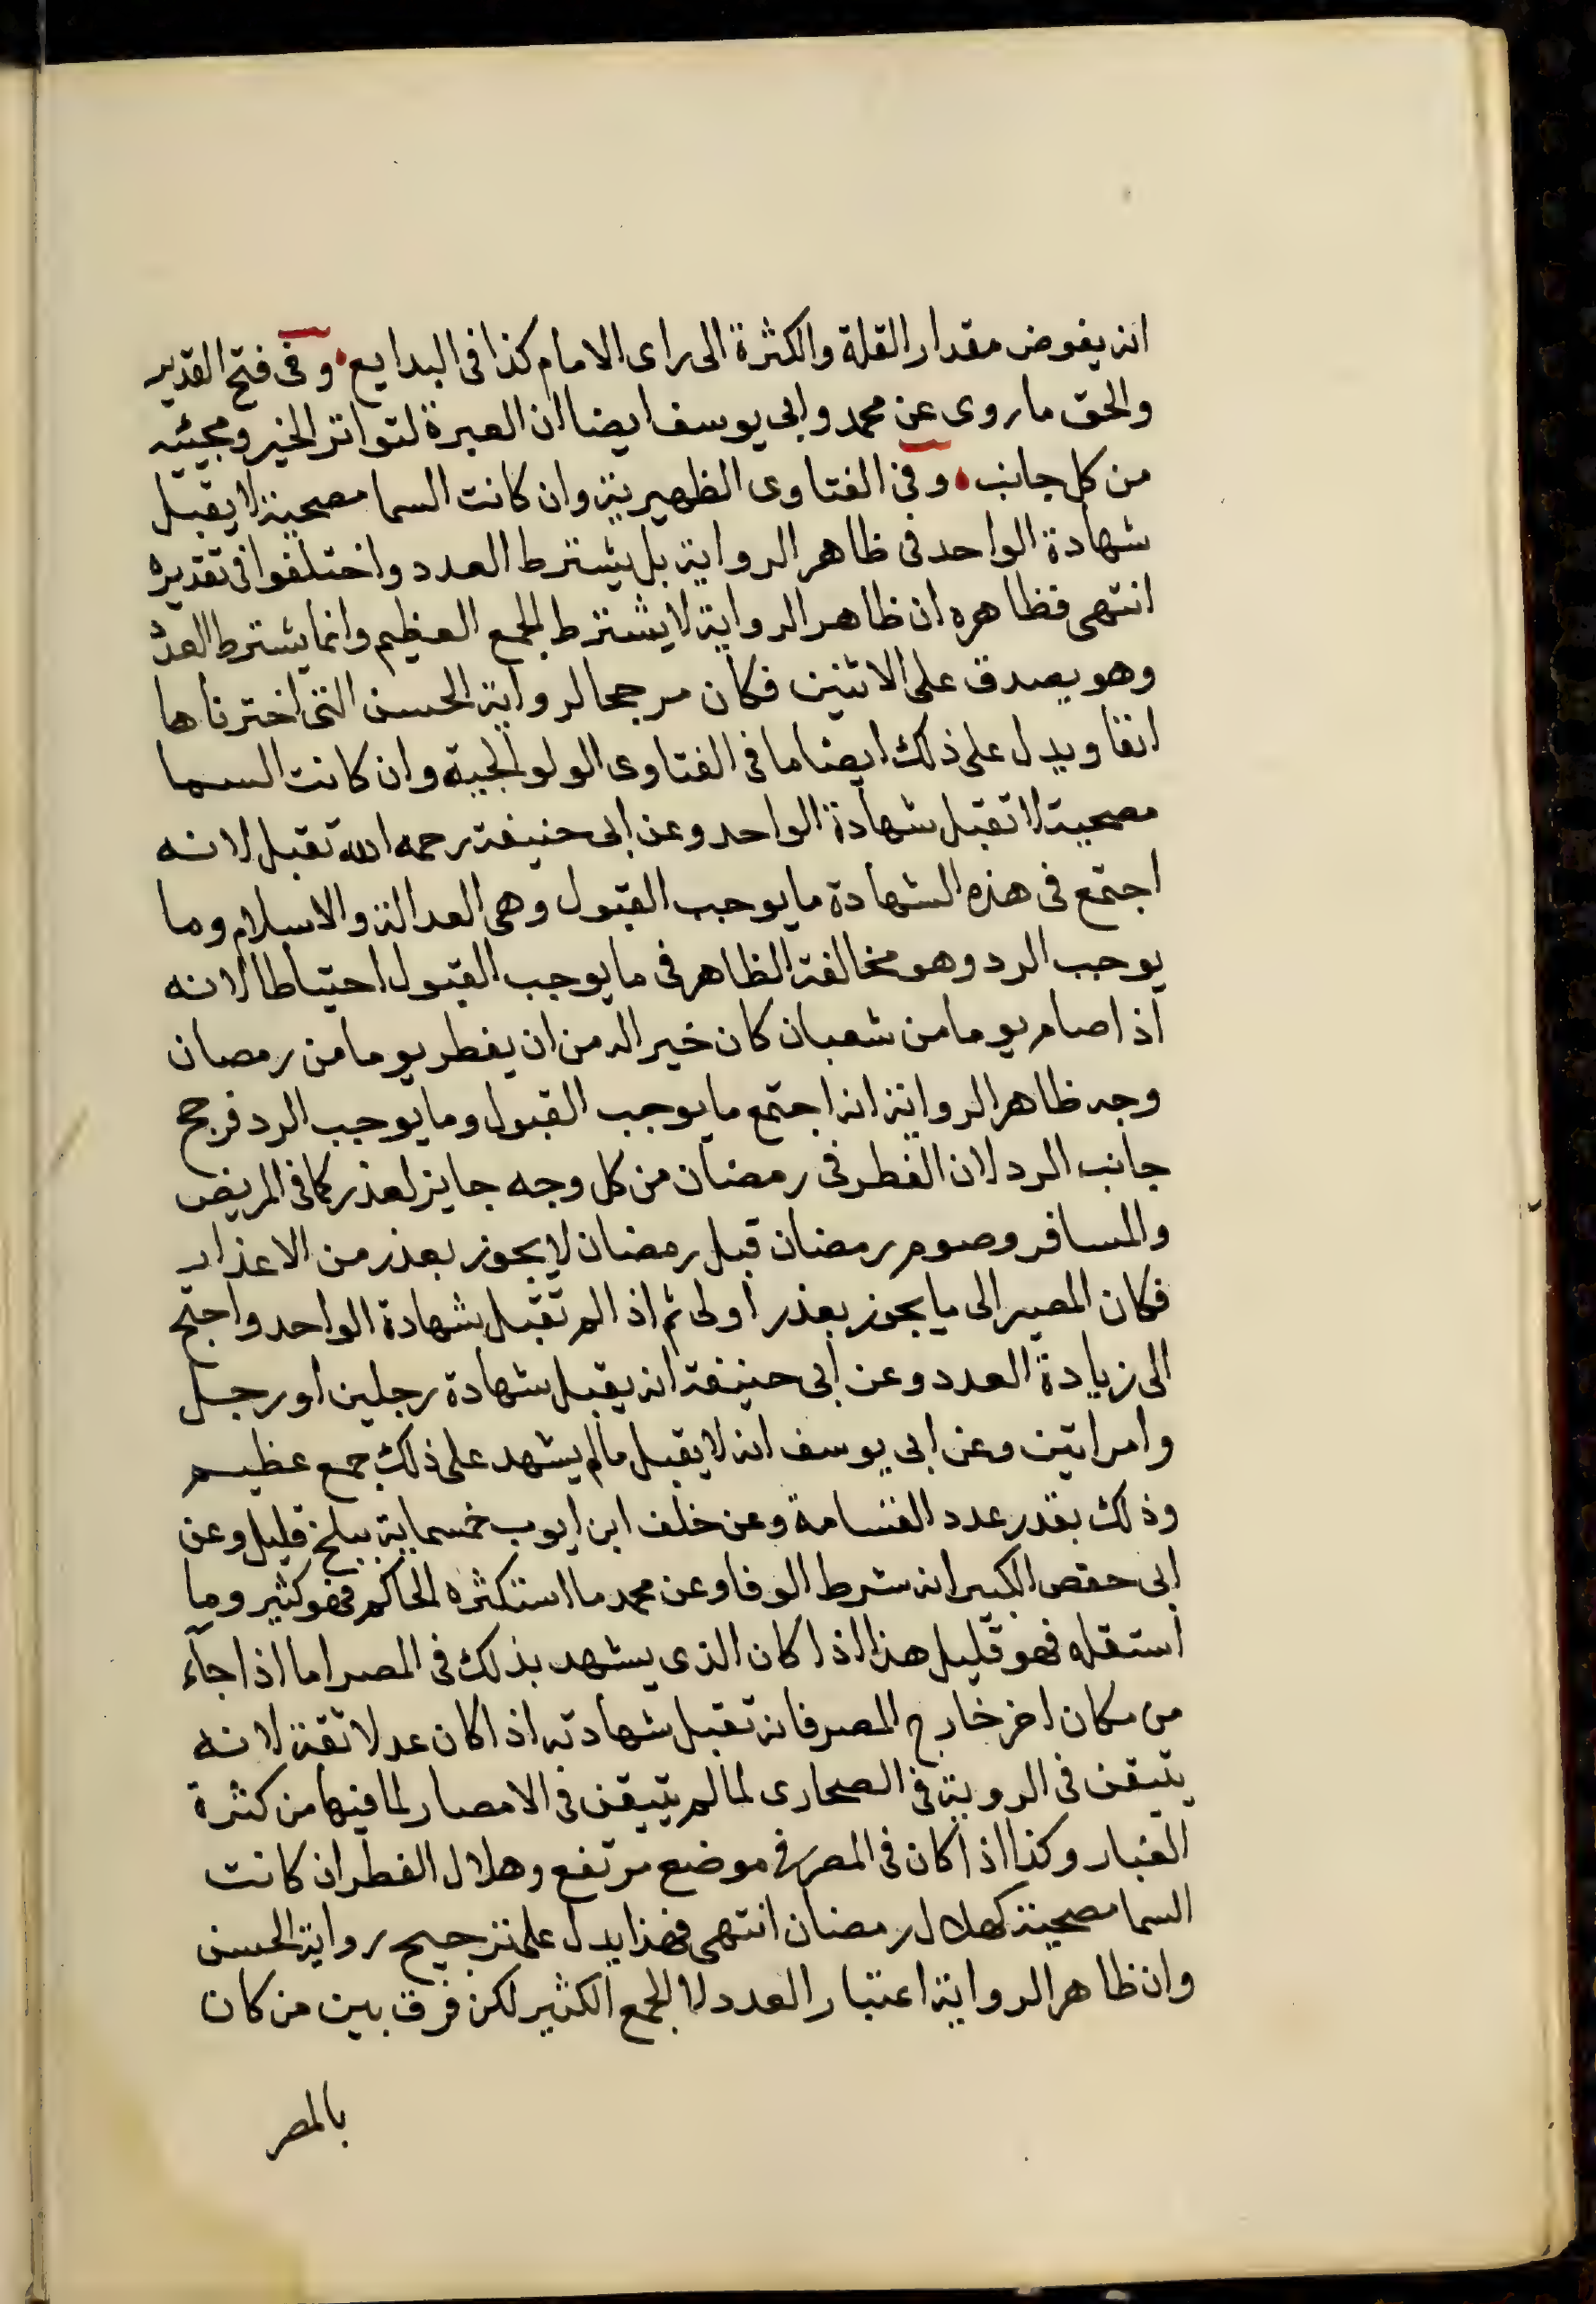 انه يفوض مقدار القلة والكثرة الى راى الامام كذا فى البدايع وفى فتح القدير
والحق ما روى عن محمد وابى يوسف ايضا ان العبرة لتواتر الخبر ومجيئيه
من كل جانب وفى الفتاوى الظهيرية وان كانت السما مصحية لا يقبل
شهادة الواحد فى ظاهر الرواية بل يشترط العدد واختلفوا فى تقديره
انتهى فظاهره ان ظاهر الرواية لا يشترط الجمع العظيم وانما يشترط العدد
وهو يصدق على الاثنين فكان مرجحا لرواية الحسن التى اخترناها
انفا ويدل على ذلك ايضا ما فى الفتاوى الولوالجية وان كانت السما
مصحية لا تقبل شهادة الواحد وعن ابى حنيفة رحمه الله تقبل لانه
اجتمع فى هذه الشهادة ما يوجب القبول وهى العدالة والاسلام وما
يوجب الرد وهو مخالفة الظاهر فى ما يوجب القبول احتياطا لانه
اذا صام يوما من شعبان كان خيرا له من ان يفطر يوما من رمضان
وجه ظاهر الرواية انه اجتمع ما يوجب القبول وما يوجب الرد فرجح
جانب الرد لان الفطر فى رمضان من كل وجه جايز لعذر كما فى المريض
والمسافر وصوم رمضان قبل رمضان لا يجوز بعذر من الاعذار
فكان المصير الى ما يجوز بعذر اولى ثم اذا لم تقبل شهادة الواحد واحتج
الى زيادة العدد وعن ابى حنيفة انه يقبل شهادة رجلين او رجل
وامراتين وعن ابى يوسف انه لا يقبل مالم يشهد على ذلك جمع عظيم
وذلك بقدر عدد القسامة وعن خلف ابن ايوب خمسماية ببلخ قليل وعن
ابى حفص الكبير انه شرط الوفا وعن محمد ما استكثره الحاكم فهو كثير وما
استقله فهو قليل هذا اذا كان الذى يشهد بذلك فى المصر اما اذا جآء
من مكان اخر خارج المصر فانه تقبل شهادته اذا كان عدلا ثقة لانه
يتيقن فى الروية فى الصحارى لما لم يتيقن فى الامصار لما فيها من كثرة
الغبار وكذا اذا كان فى المصر فى موضع مرتفع وهلال الفطر ان كانت
السما مصحية كهلال رمضان انتهى فهذا يدل على ترجيح رواية الحسن
وان ظاهر الرواية اعتبار العدد لا الجمع الكثير لكن فرق بين من كان
بالمصر